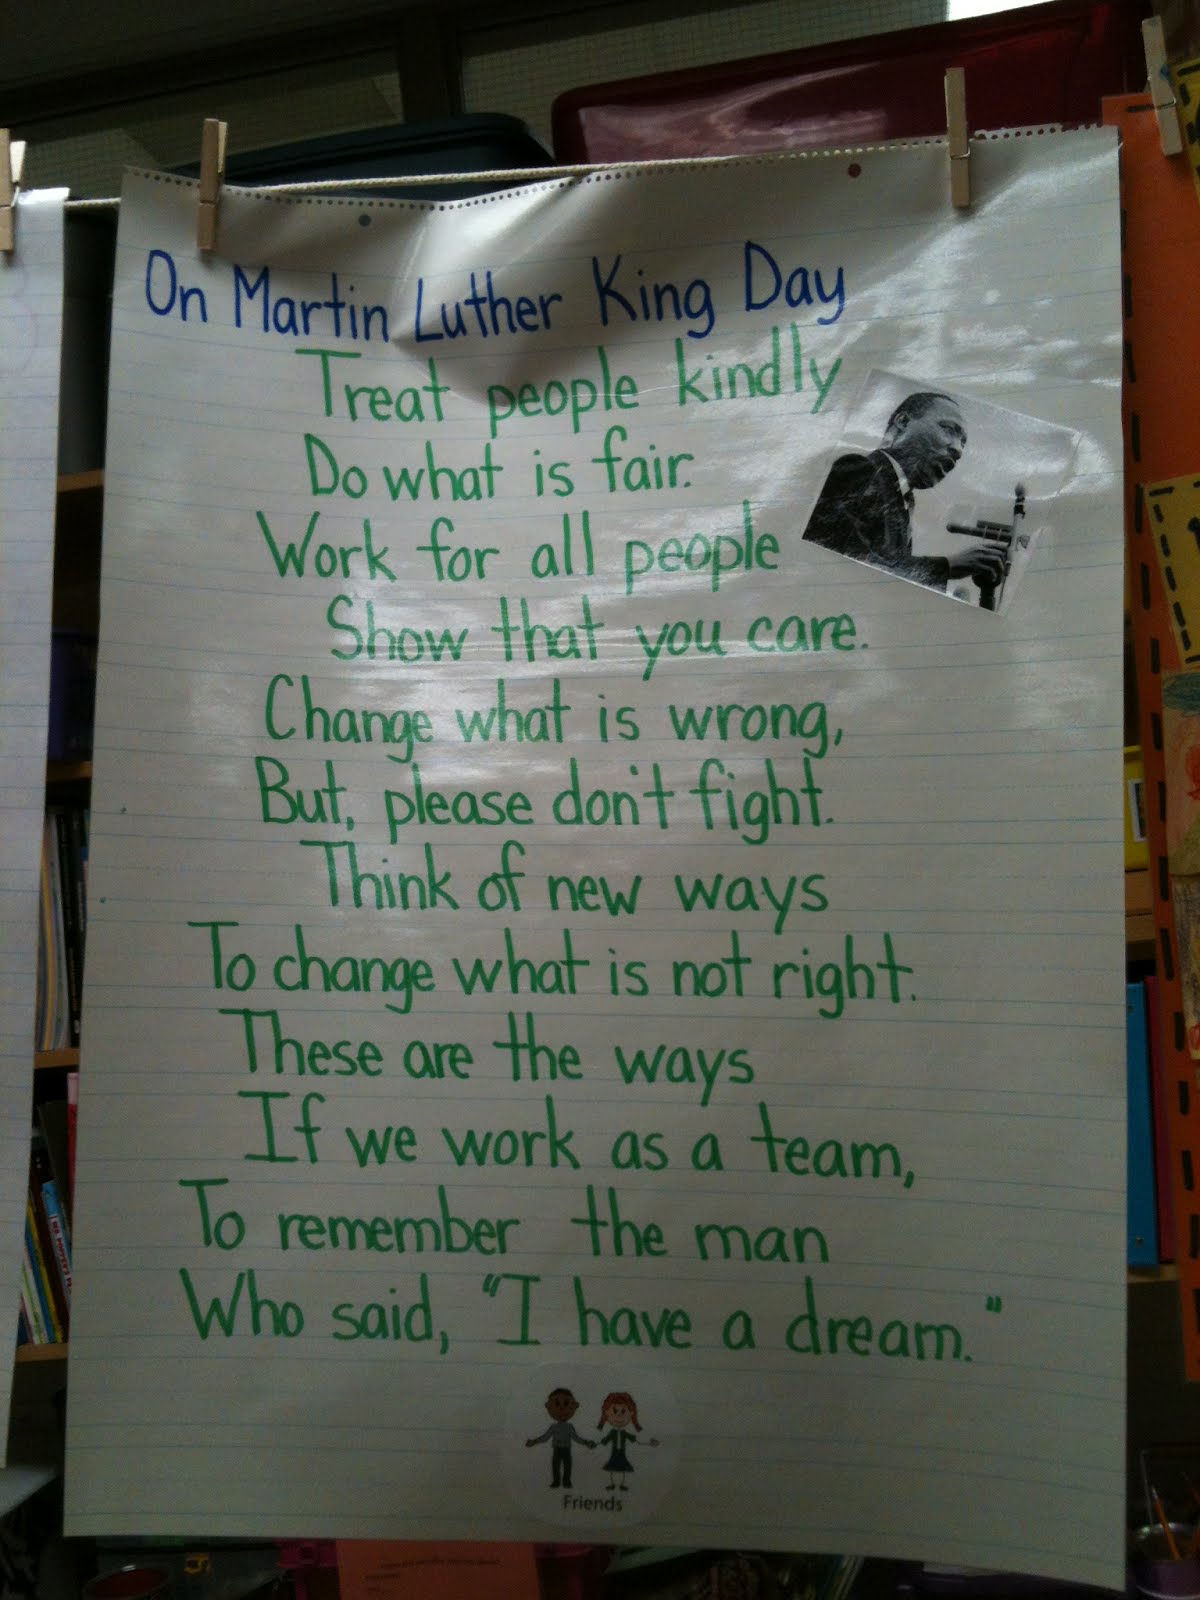 On Martin Luther King Day
Treat people kindly
Do what is fair.
Work for all people
Show that you care.
Change what is wrong,
But, please don't fight.
Think of new ways
To change what is not right.
These are the ways
If we work as a team,
To remember the man
Who said, "I have a dream."
Friends